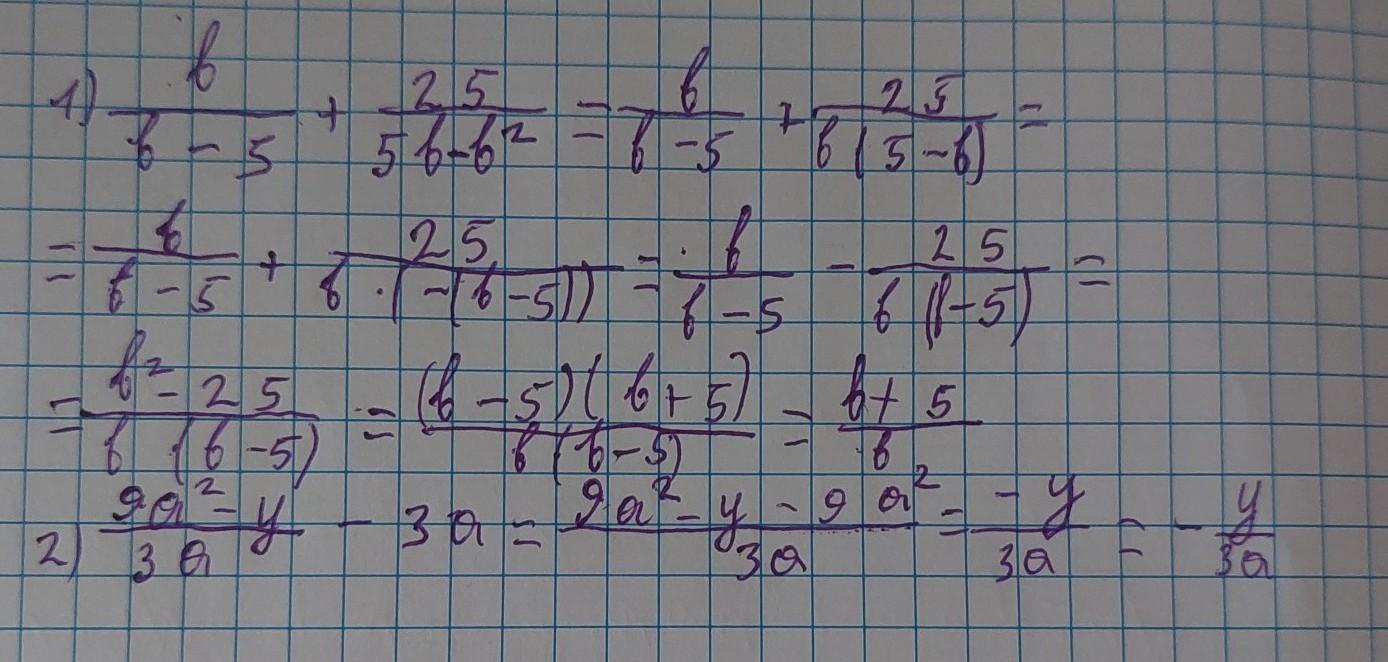 1) b/(b - 5) + 25/(5b - b²) = b/(b - 5) + 25/(b(5 - b)) =
= b/(b - 5) + 25/(b · (-(b - 5))) = b/(b - 5) - 25/(b(b - 5)) =
= (b² - 25)/(b(b - 5)) = ((b - 5)(b + 5))/(b(b - 5)) = (b + 5)/b
2) (9a² - y)/(3a) - 3a = (9a² - y - 9a²)/(3a) = (-y)/(3a) = - y/(3a)